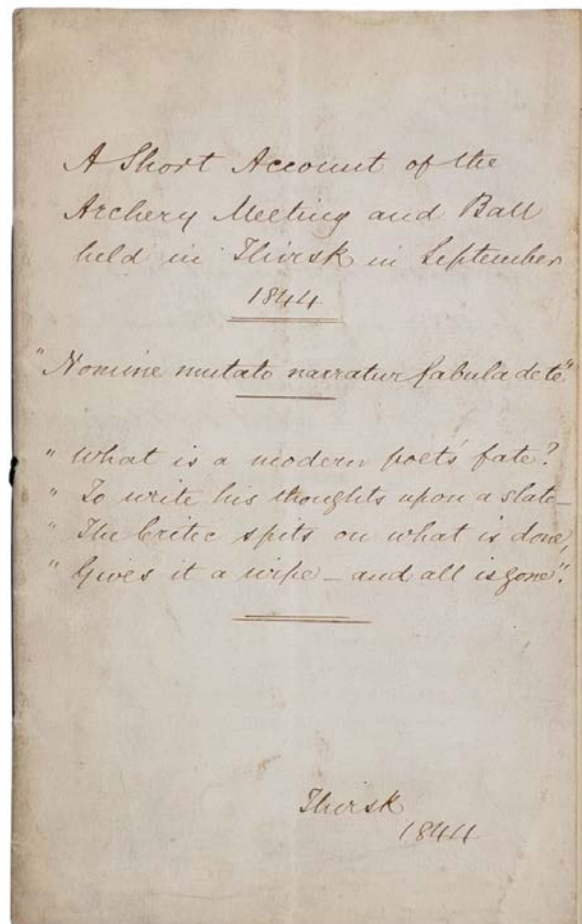 A Short Account of the
Archery Meeting and Ball
held in Thirsk in September
1844
"Nomine mutato narratur fabula de te"
" What is a modern poet's fate?
" To write his thoughts upon a slate—
" The Critic spits on what is done,
" Gives it a wipe — and all is gone".
Thirsk
1844